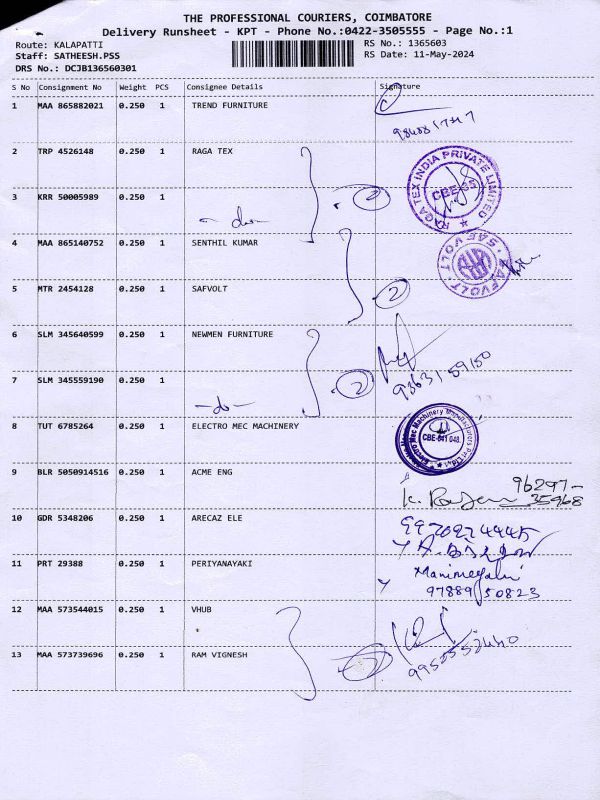 THE PROFESSIONAL COURIERS, COIMBATORE
Delivery Runsheet - KPT - Phone No.:0422-3505555 - Page No.:1
Route: KALAPATTI
Staff: SATHEESH.PSS
DRS No.: DCJB136560301
RS No.: 1365603
RS Date: 11-May-2024
S No Consignment No Weight PCS Consignee Details Signature
1 MAA 865882021 0.250 1 TREND FURNITURE
2 TRP 4526148 0.250 1 RAGA TEX
RAGA TEX INDIA PRIVATE LIMITED
CBE-35
3 KRR 50005989 0.250 1 2
4 MAA 865140752 0.250 1 SENTHIL KUMAR
SAFVOLT
5 MTR 2454128 0.250 1 SAFVOLT 2
6 SLM 345640599 0.250 1 NEWMEN FURNITURE
93631 59150
7 SLM 345559190 0.250 1 -do- 2
8 TUT 6785264 0.250 1 ELECTRO MEC MACHINERY
CBE-641 048.
9 BLR 5050914516 0.250 1 ACME ENG
96297-
35968
10 GDR 5348206 0.250 1 ARECAZ ELE
11 PRT 29388 0.250 1 PERIYANAYAKI
Manimegalai
97889 50823
12 MAA 573544015 0.250 1 VHUB
13 MAA 573739696 0.250 1 RAM VIGNESH 2